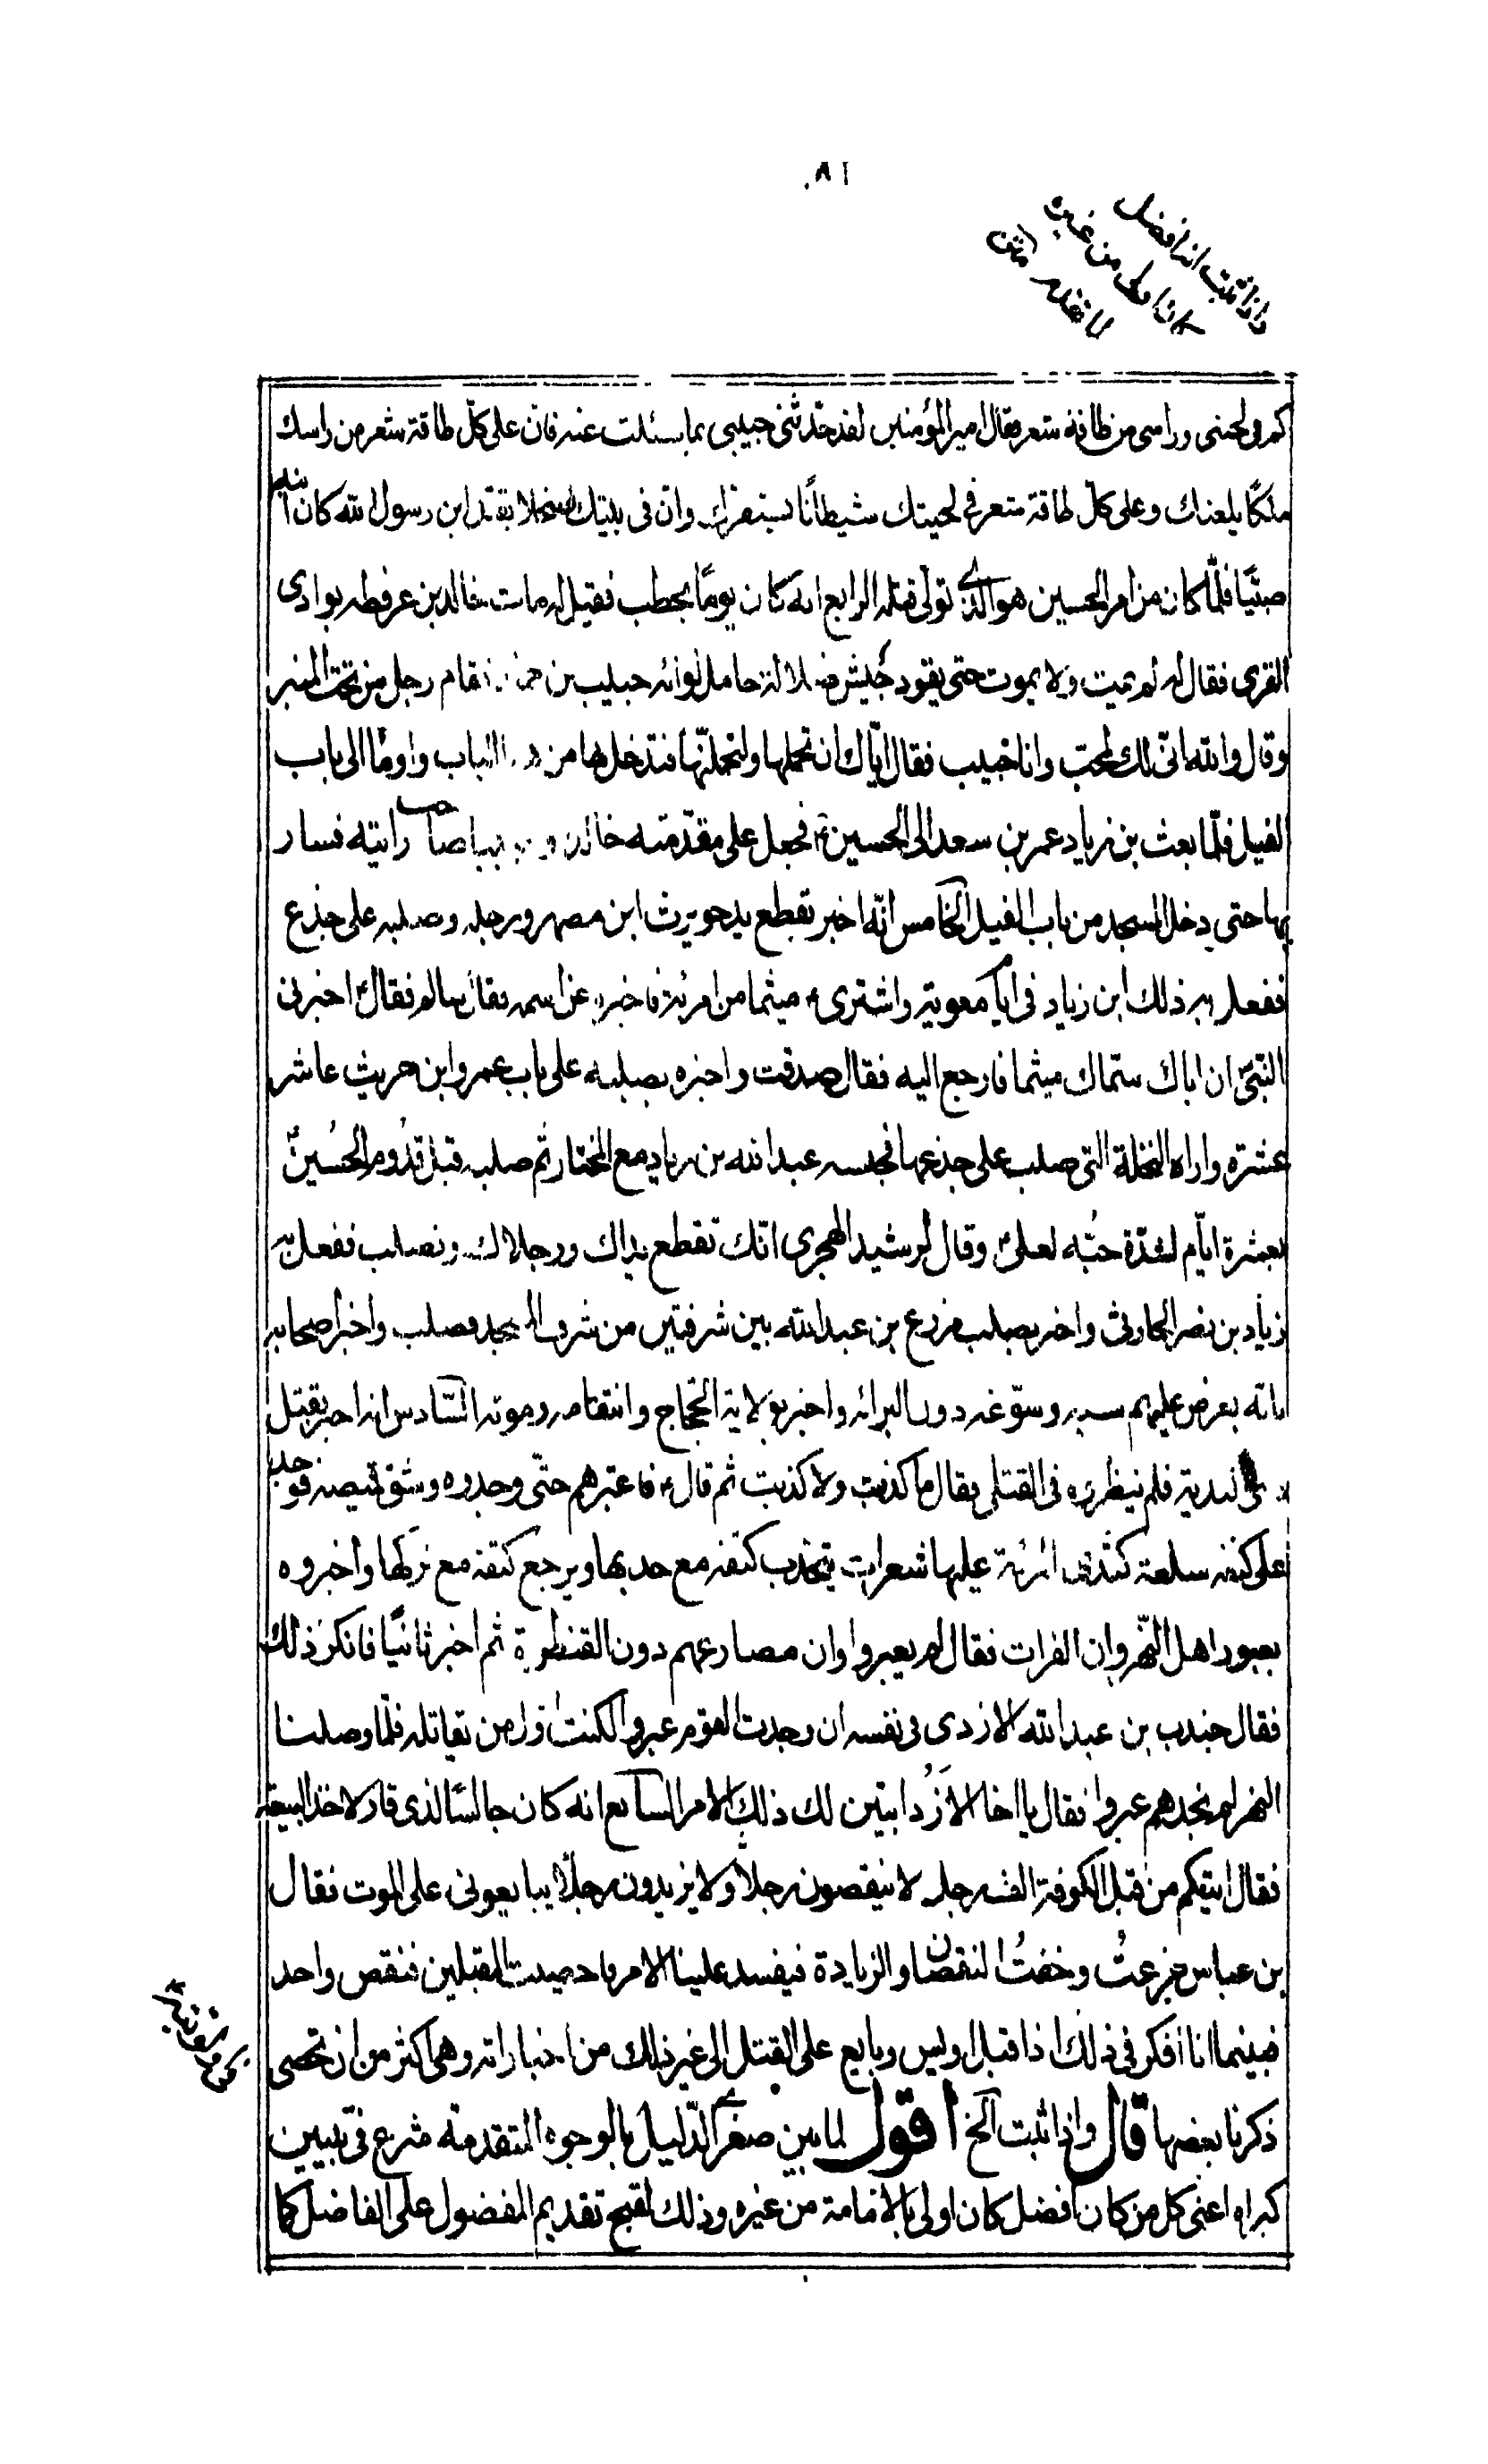 ٨١
واذا ثبت انه افضل
كان اولى من غيره
كم فى لحيتى وراسى من طاقة شعر فقال امير المؤمنين لقد حدّثنى حبيبى بما سئلت عنه فانّ على كلّ طاقة شعر من راسك
ملكًا يلعنك وعلى كلّ طاقة شعر فى لحيتك شيطانًا يستفزك وانّ فى بيتك لسخلا يقتل ابن رسول الله كان ابنه
صبيّا فلمّا كان من امر الحسين هو الذى تولّى قتله الرابع انه كان يومًا يخطب فقيل له مات خالد بن عرفطه بوادى
القرى فقال له لم يمت ولا يموت حتى يقود جيش ضلالة حامل لوائه حبيب بن فقام رجل من تحت المنبر
وقال والله انّى لك لمحبّ وانا حبيب فقال ايّاك ان تحملها ولتحملنّها فتدخل بها من هذا الباب واومأ الى باب
الفيل فلمّا بعث بن زياد عمر بن سعد الى الحسين ع فجعل على مقدّمته خالدا صاحب رايته فسار
بها حتى دخل المسجد من باب الفيل الخامس انّه اخبر بقطع يد جويرث ابن مصهر ورجله وصلبه على جذع
ففعل به ذلك ابن زياد فى ايام معوية واشترى ع ميثما من امرئة فاخبره عن اسمه فقال سالم فقال ع اخبرنى
النّبىّ ان اباك سمّاك ميثما فارجع اليه فقال صدقت واخبره بصلبه على باب عمرو ابن حريث عاشر
عشرة واراه النخلة التى صلب على جذعها فحبسه عبد الله بن زياد مع المختار ثم صلبه قبل قدوم الحسين
بعشرة ايّام لشدّة حبّه لعلىّ وقال لرشيد الهجرى انّك تقطع يداك ورجلاك وتصلب ففعل به
زياد بن نصر الحارثى واخبر بصلب مزرع بن عبد الله بين شرفتين من شرف المسجد فصلب واخبر اصحابه
بانّه يعرض عليهم سبه وسوّغه دون البرائه واخبر بولاية الحجّاج وانتقامه وموته السّادس انه اخبر بقتل
ذى الثدية فلم ينظروه فى القتلى فقال ما كذبت ولا كذبت ثم قال ع فاعتبرهم حتّى وجدوه وشق قميصه فوجد
على كتفه سلعة كثدى المرئة عليها شعرات يجذب كتفه مع جذبها ويرجع كتفه مع تركها واخبروه
بعبور اهل النّهروان الفرات فقال لم يعبروا وان مصارعهم دون القنطرة ثم اخبر ثانيًا فانكر ذلك
فقال جندب بن عبد الله الازدى فى نفسه ان وجدت القوم عبروا لكنت اوّل من يقاتله فلمّا وصلنا
النهر لم نجدهم عبروا فقال يا اخا الازد اتبيّن لك ذلك الامر السّابع انه كان جالسًا لذى قار لاخذ البيعة
فقال ياتيكم من قبل الكوفة الف رجل لا ينقصون رجلًا ولا يزيدون رجلًا يبايعونى على الموت فقال
بن عباس فجزعت وخفت النقصان او الزيادة فيفسد علينا الامر فاحصيت المقبلين فنقص واحد
فبينما انا افكر فى ذلك اذ اقبل اويس وبايع على القتل الى غير ذلك من اخباراته وهى اكثر من ان تحصى
ذكرنا بعضها قال واذا ثبت الخ اقول لما بين صغرى الدّليل بالوجوه المتقدمة شرع فى تبيين
كبراه اعنى كل من كان افضل كان اولى بالامامة من غيره وذلك لقبح تقديم المفضول على الفاضل كما